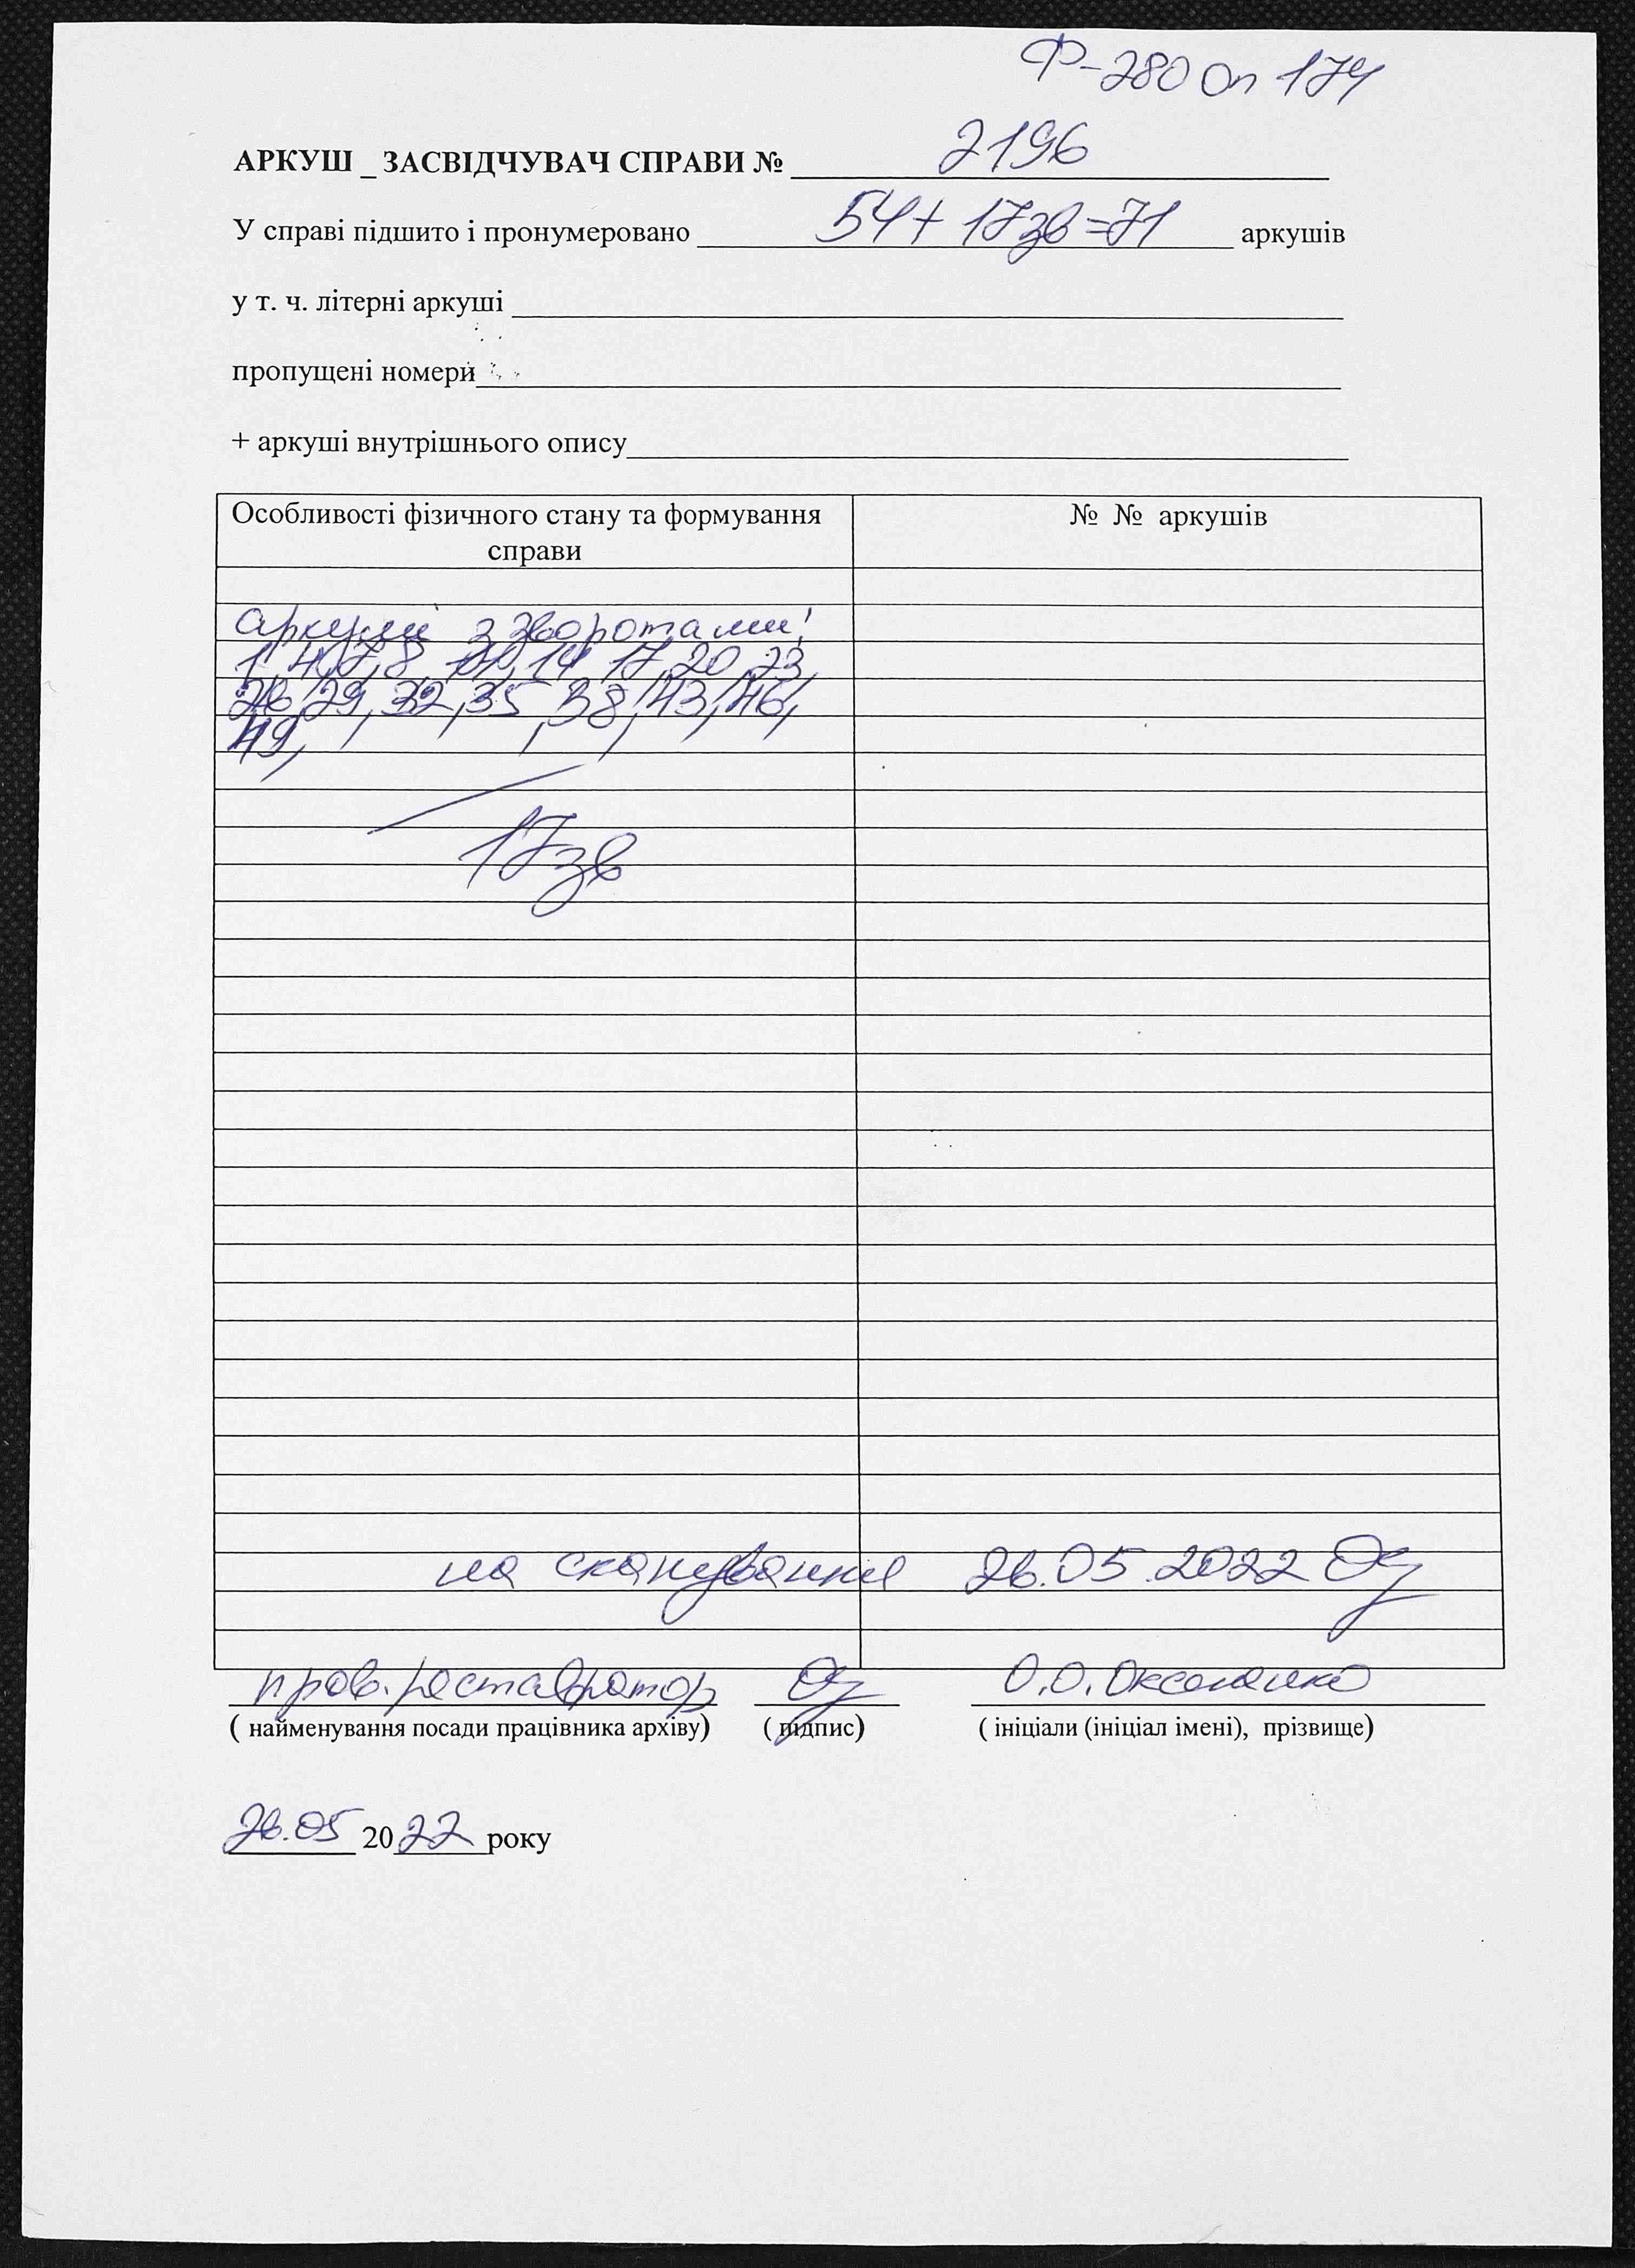 Ф-280 Оп 174
АРКУШ _ ЗАСВІДЧУВАЧ СПРАВИ № 2196
У справі підшито і пронумеровано 54+17зв=71 аркушів
у т. ч. літерні аркуші
пропущені номери
+ аркуші внутрішнього опису
Особливості фізичного стану та формування справи
№ № аркушів
аркуші з зворотами:
1, 4, 7, 8, 14, 17, 20, 23,
26, 29, 32, 35, 38, 43, 46,
49,
17зв
на сканування 26.05.2022
пров. реставратор О.О. Оксененко
( найменування посади працівника архіву) ( підпис) ( ініціали (ініціал імені), прізвище)
26.05 2022 року